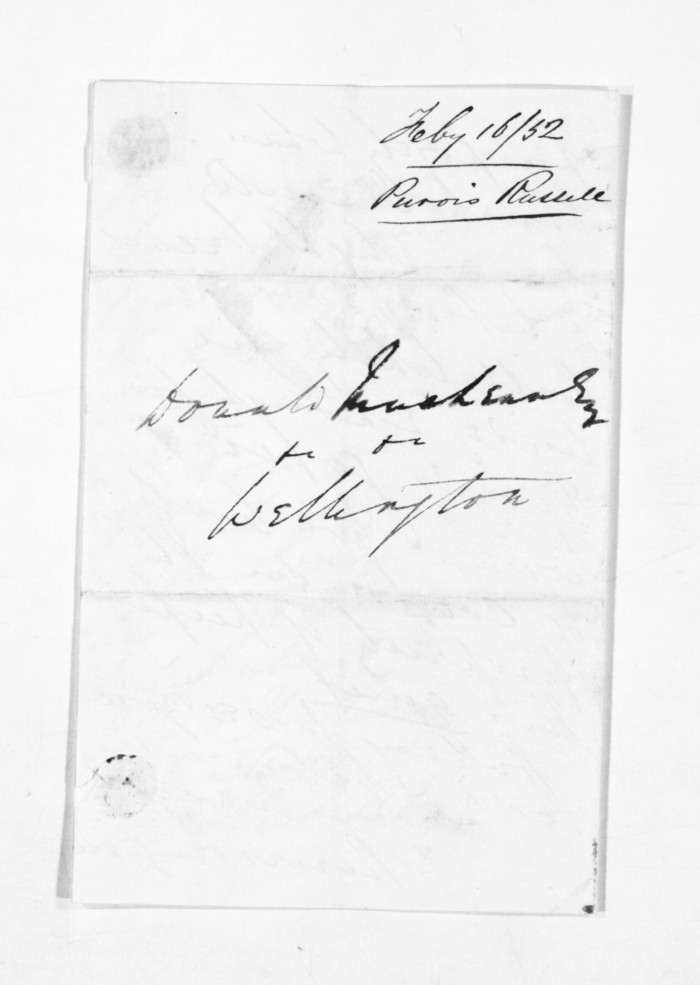 Feby 16/52
Purvis Russell
Donald McLean Esq
&c &c
Wellington